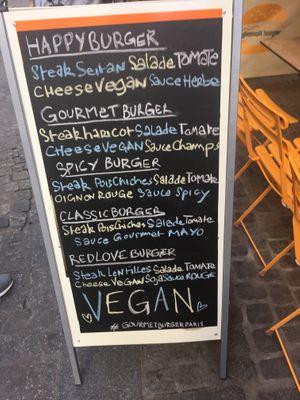 HAPPYBURGER
Steak Seitan Salade Tomate
Cheese Vegan Sauce Herbe
GOURMET BURGER
Steak haricot Salade Tomate
Cheese Vegan Sauce Champs
SPICY BURGER
Steak Pois Chiches Salade Tomate
Oignon Rouge Sauce Spicy
CLASSIC BURGER
Steak Pois Chiches Salade Tomate
Sauce Gourmet MAYO
REDLOVE BURGER
Steak Lentilles Salade Tomate
Cheese Vegan Soja Sauce Rouge
VEGAN
#GOURMETBURGERPARIS